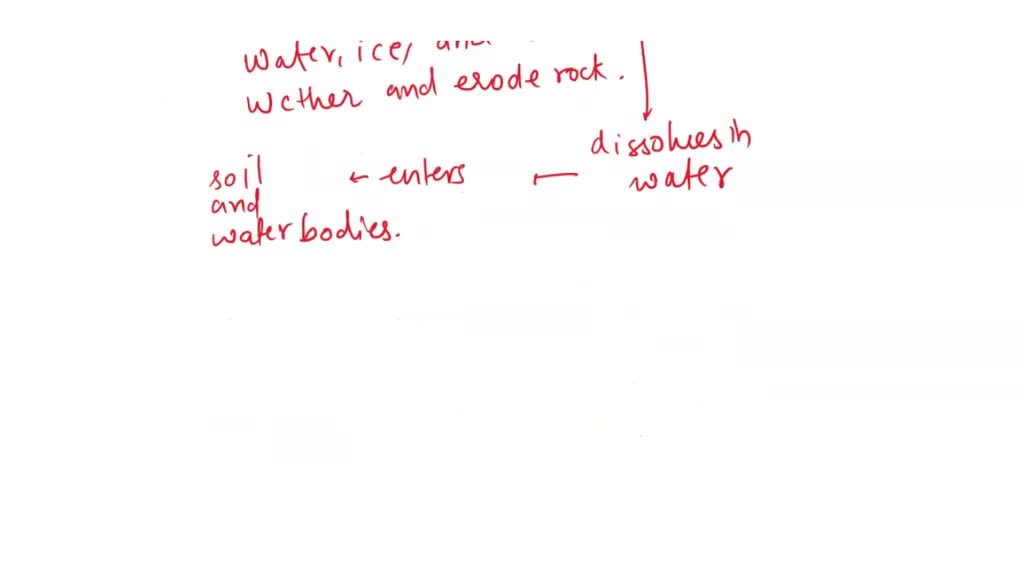 water, ice,
wether and erode rock.
dissolves in
water
← enters ←
soil
and
water bodies.